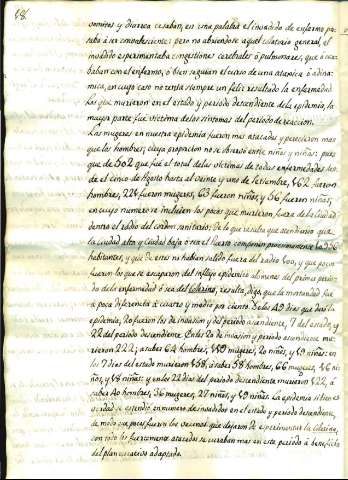 18.
vomitos y diarrea cesaban, en una palabra el invadido de enfermo pa
saba á ser convaleciente; pero no abriendose aquel colatorio general, el
invadido experimentaba congestiones cerebrales ó pulmonares, que ó aca
baban con el enfermo, ó bien seguian el curso de una atapica ó adina
mica, en cuyo caso no tenia siempre un feliz resultado la enfermedad
Los que murieron en el estado y periodo descendiente de la epidemia, la
mayor parte fue victima de los sintomas del periodo de reaccion.
Las mugeres en nuestra epidemia fueron mas atacadas y perecieron mas
que los hombres; cuya proporcion no se observó entre niños y niñas: pues
que de 502 que fué el total de las victimas de todas enfermedades des
de el cinco de Agosto hasta el veinte y uno de Setiembre, 162 fueron
hombres, 221 fueron mugeres, 63 fueron niños, y 56 fueron niñas,
en cuyo numero se incluien los pocos que murieron fuera de la Ciudad
dentro el radio del cordon sanitario: de lo que resulta que atendiendo que
la ciudad alta y ciudad baja ó sea el Puerto componian proximamente
habitantes, y que de estos no habian salido fuera del radio 400, y que pocos
fueron los que se escaparon del influjo epidemico al menos del primer perio
do de la enfermedad ó sea del colerina, resulta, digo, que la mortandad fue
á poca diferencia á cuatro y medio por ciento. De los 49 dias que duró la
epidemia, 20 fueron los de invasion y del periodo ascendiente, 7 del estado, y
22 del periodo descendiente. En los 20 de invasion y periodo ascendiente mu
rieron 222; á saber 64 hombres, 119 mugeres, 20 niños, y 19 niñas: en
los 7 dias del estado murieron 158, á saber 58 hombres, 66 mugeres, 16 ni
ños, y 18 niñas: y en los 22 dias del periodo descendiente murieron 122, á
saber 40 hombres, 36 mugeres, 27 niños, y 19 niñas. La epidemia si bien es
verdad se estendió en numero de invadidos en el estado y periodo descendiente,
de modo que pocos fueron los vecinos que dejaron de experimentar la colerina,
con todo los fuertemente atacados se curaban mas en este periodo á beneficio
del plan curativo adoptado.